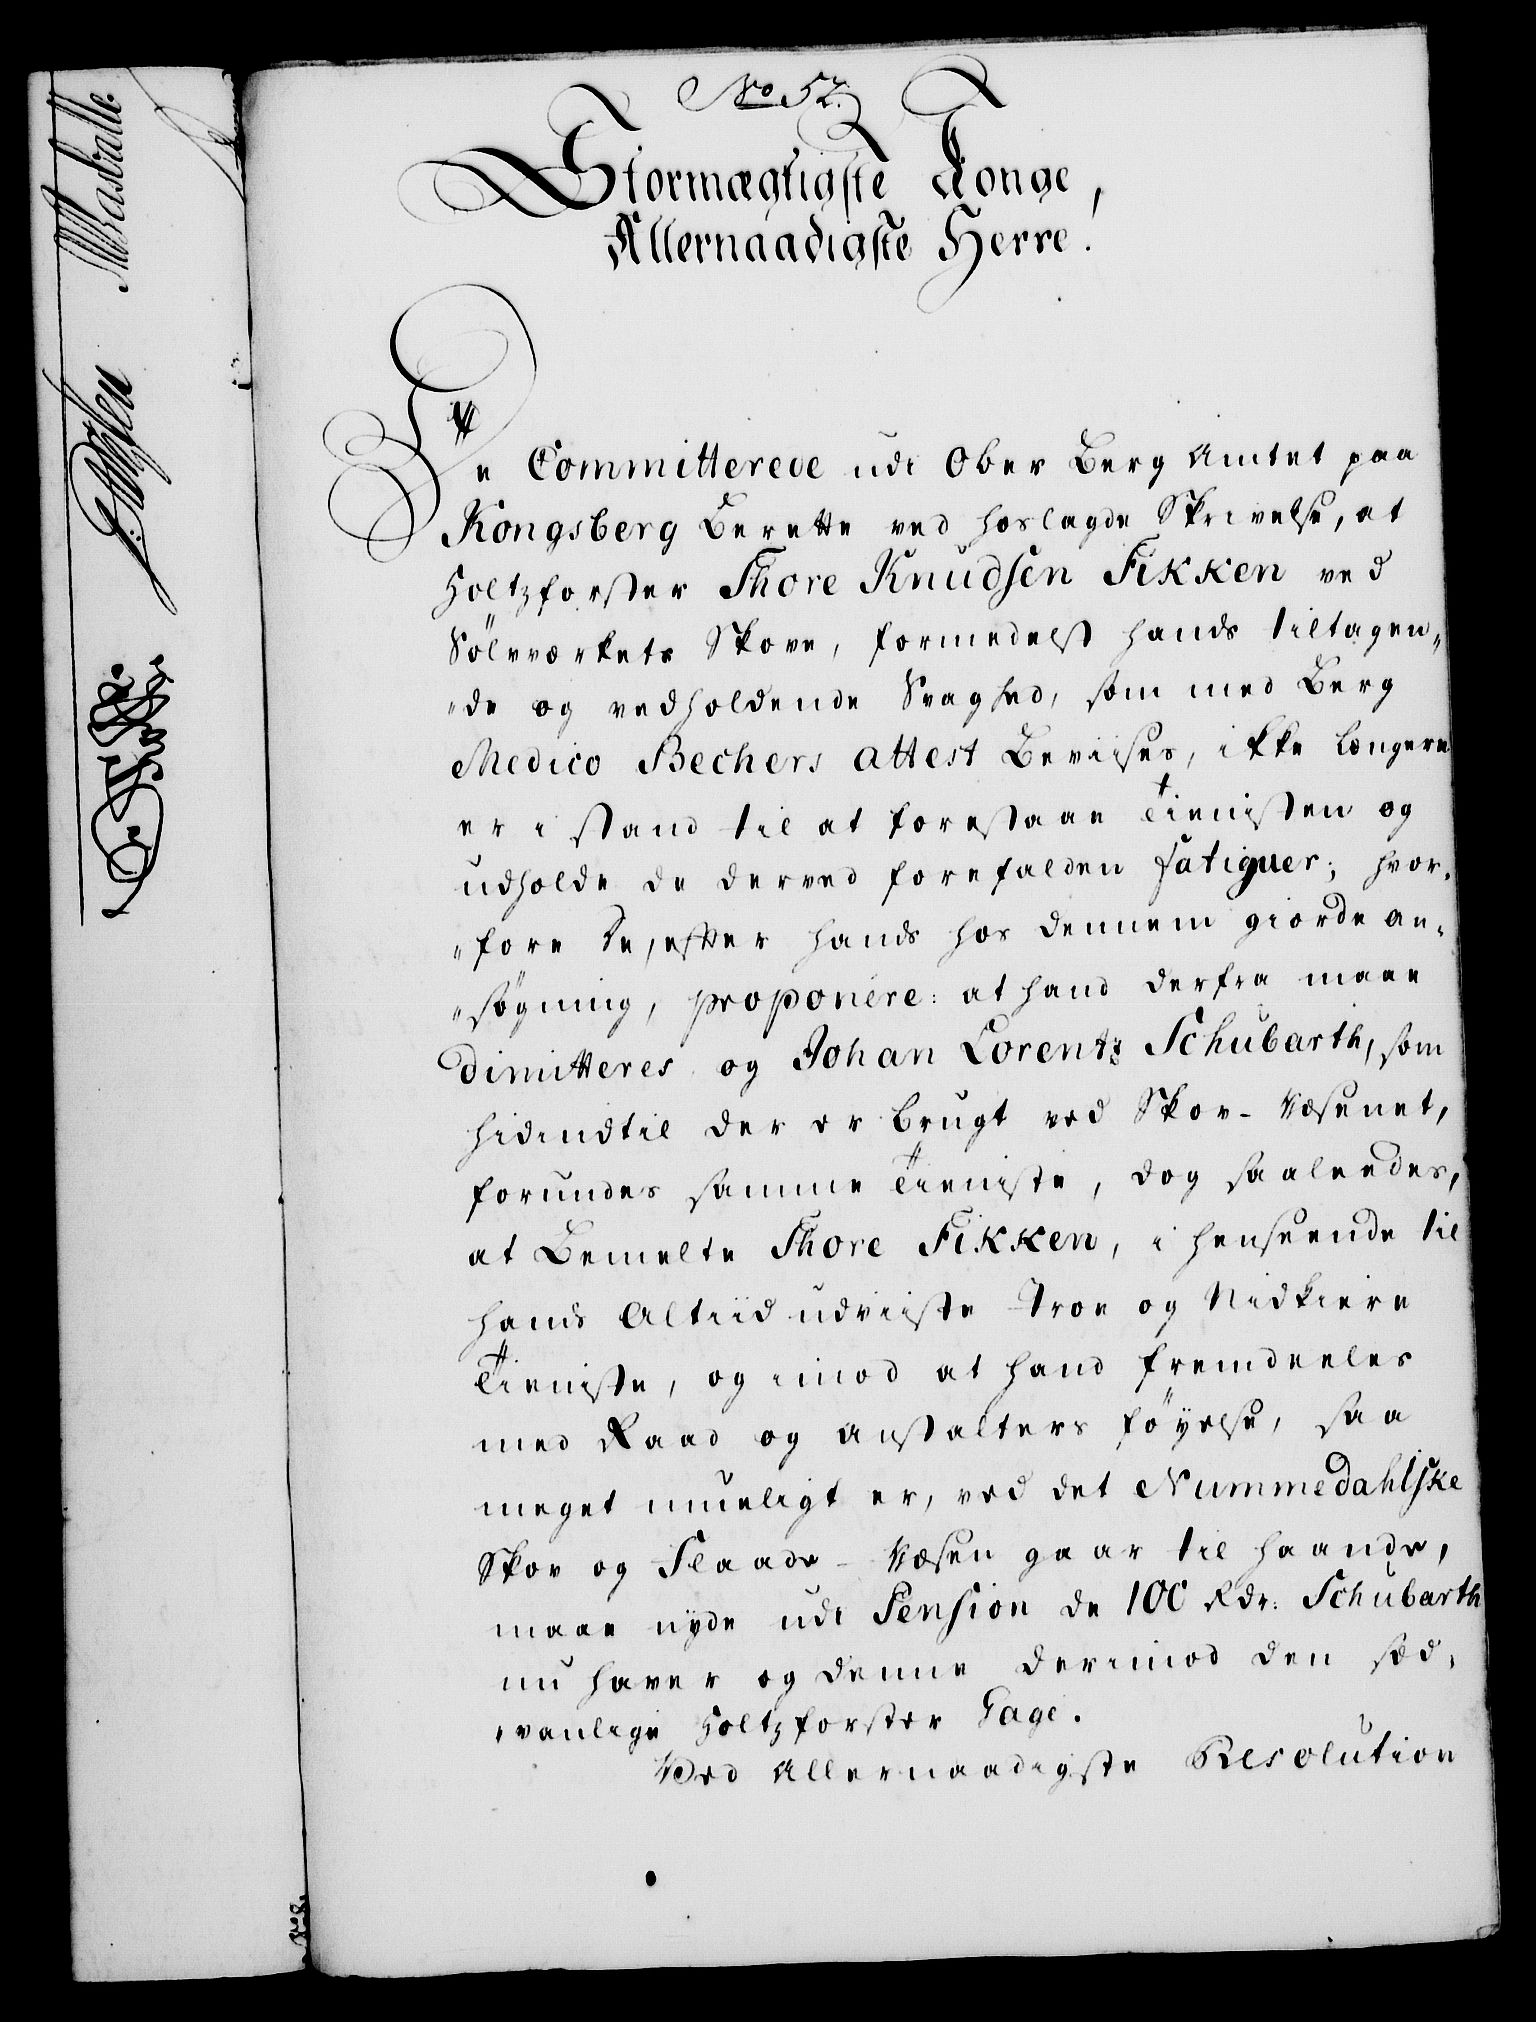 No 52.
Stormægtigste Konge,
Allernaadigste Herre!
De Committerede udi Ober Berg Amtet paa
Kongsberg Berette ved hoslagde Skrivelse, at
Holtzforster Thore Knudsen Fikken ved
Sölvværkets Skove, formedelst hands tiltagen„
„de og vedholdende Svaghed, som med Berg
Medico Bechers attest Beviises, ikke længere
er i stand til at forestaae Tienisten og
udholde de derved forefalden fatiguer; hvor„
„fore De, efter hands hos dennem giorde an„
„søgning, proponere: at hand derfra maae
dimitteres og Johan Lorentz Schubarth, som
hidindtil der er brugt ved Skov-Væsenet,
forundes samme Tieniste, dog saaleedes,
at Bemelte Thore Fikken, i henseende til
hands Altiid udviiste Troe og Nidkiere
Tieniste, og imod at hand fremdeeles
med Raad og Anstalters föyelse, saa
meget mueligt er, ved det Nummedahlske
Skov og Flaade-Væsen gaar til haande,
maae nyde udi Pension de 100 Rdr: Schubarth
nu haver og denne derimod den sæd„
„vanlige Holtzforster Gage.
Ved Allernaadigste Resolution